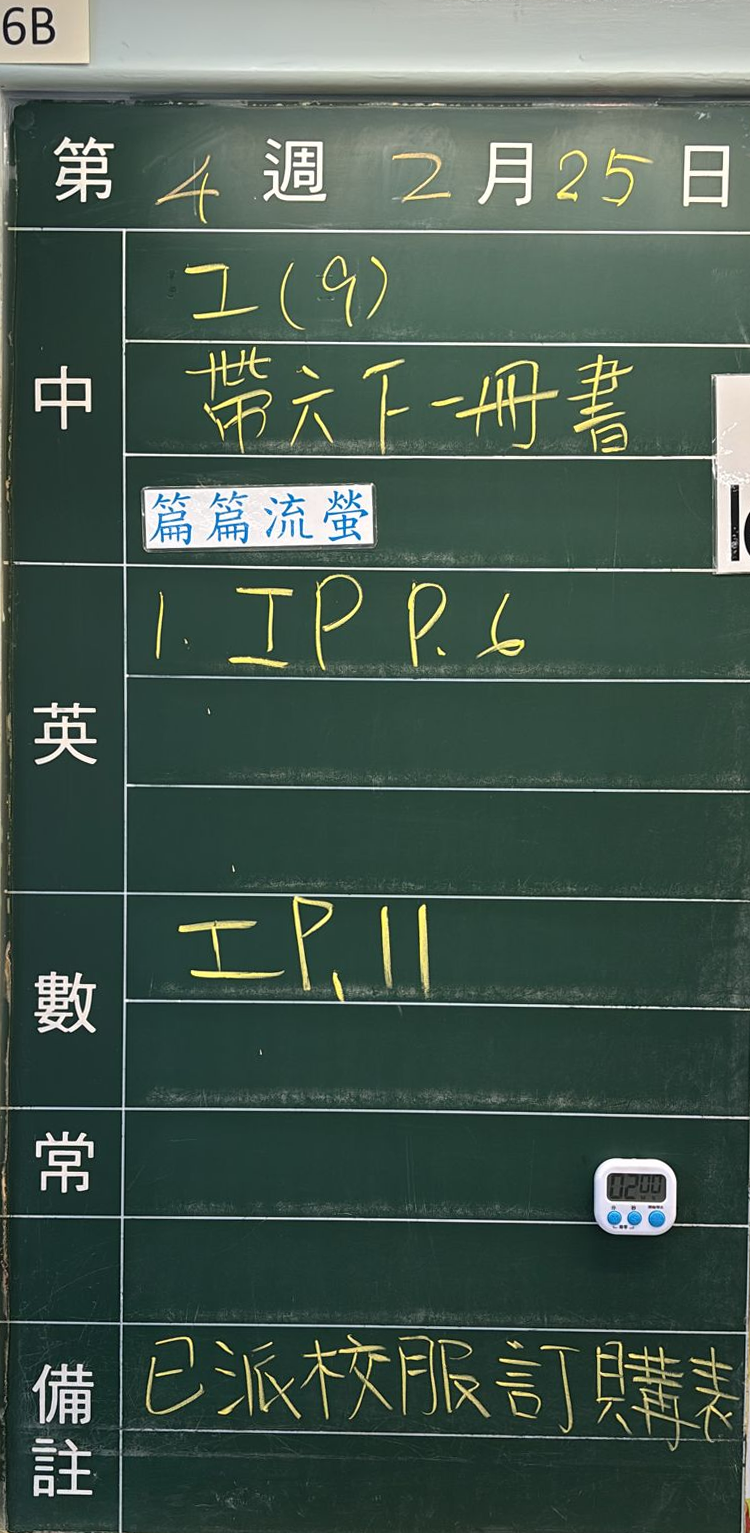 6B
第 4 週 2 月 25 日
中
工(9)
帶六下一冊書
篇篇流螢
英
1. IP P.6
數
工 P.11
常
02 00
備註
已派校服訂購表